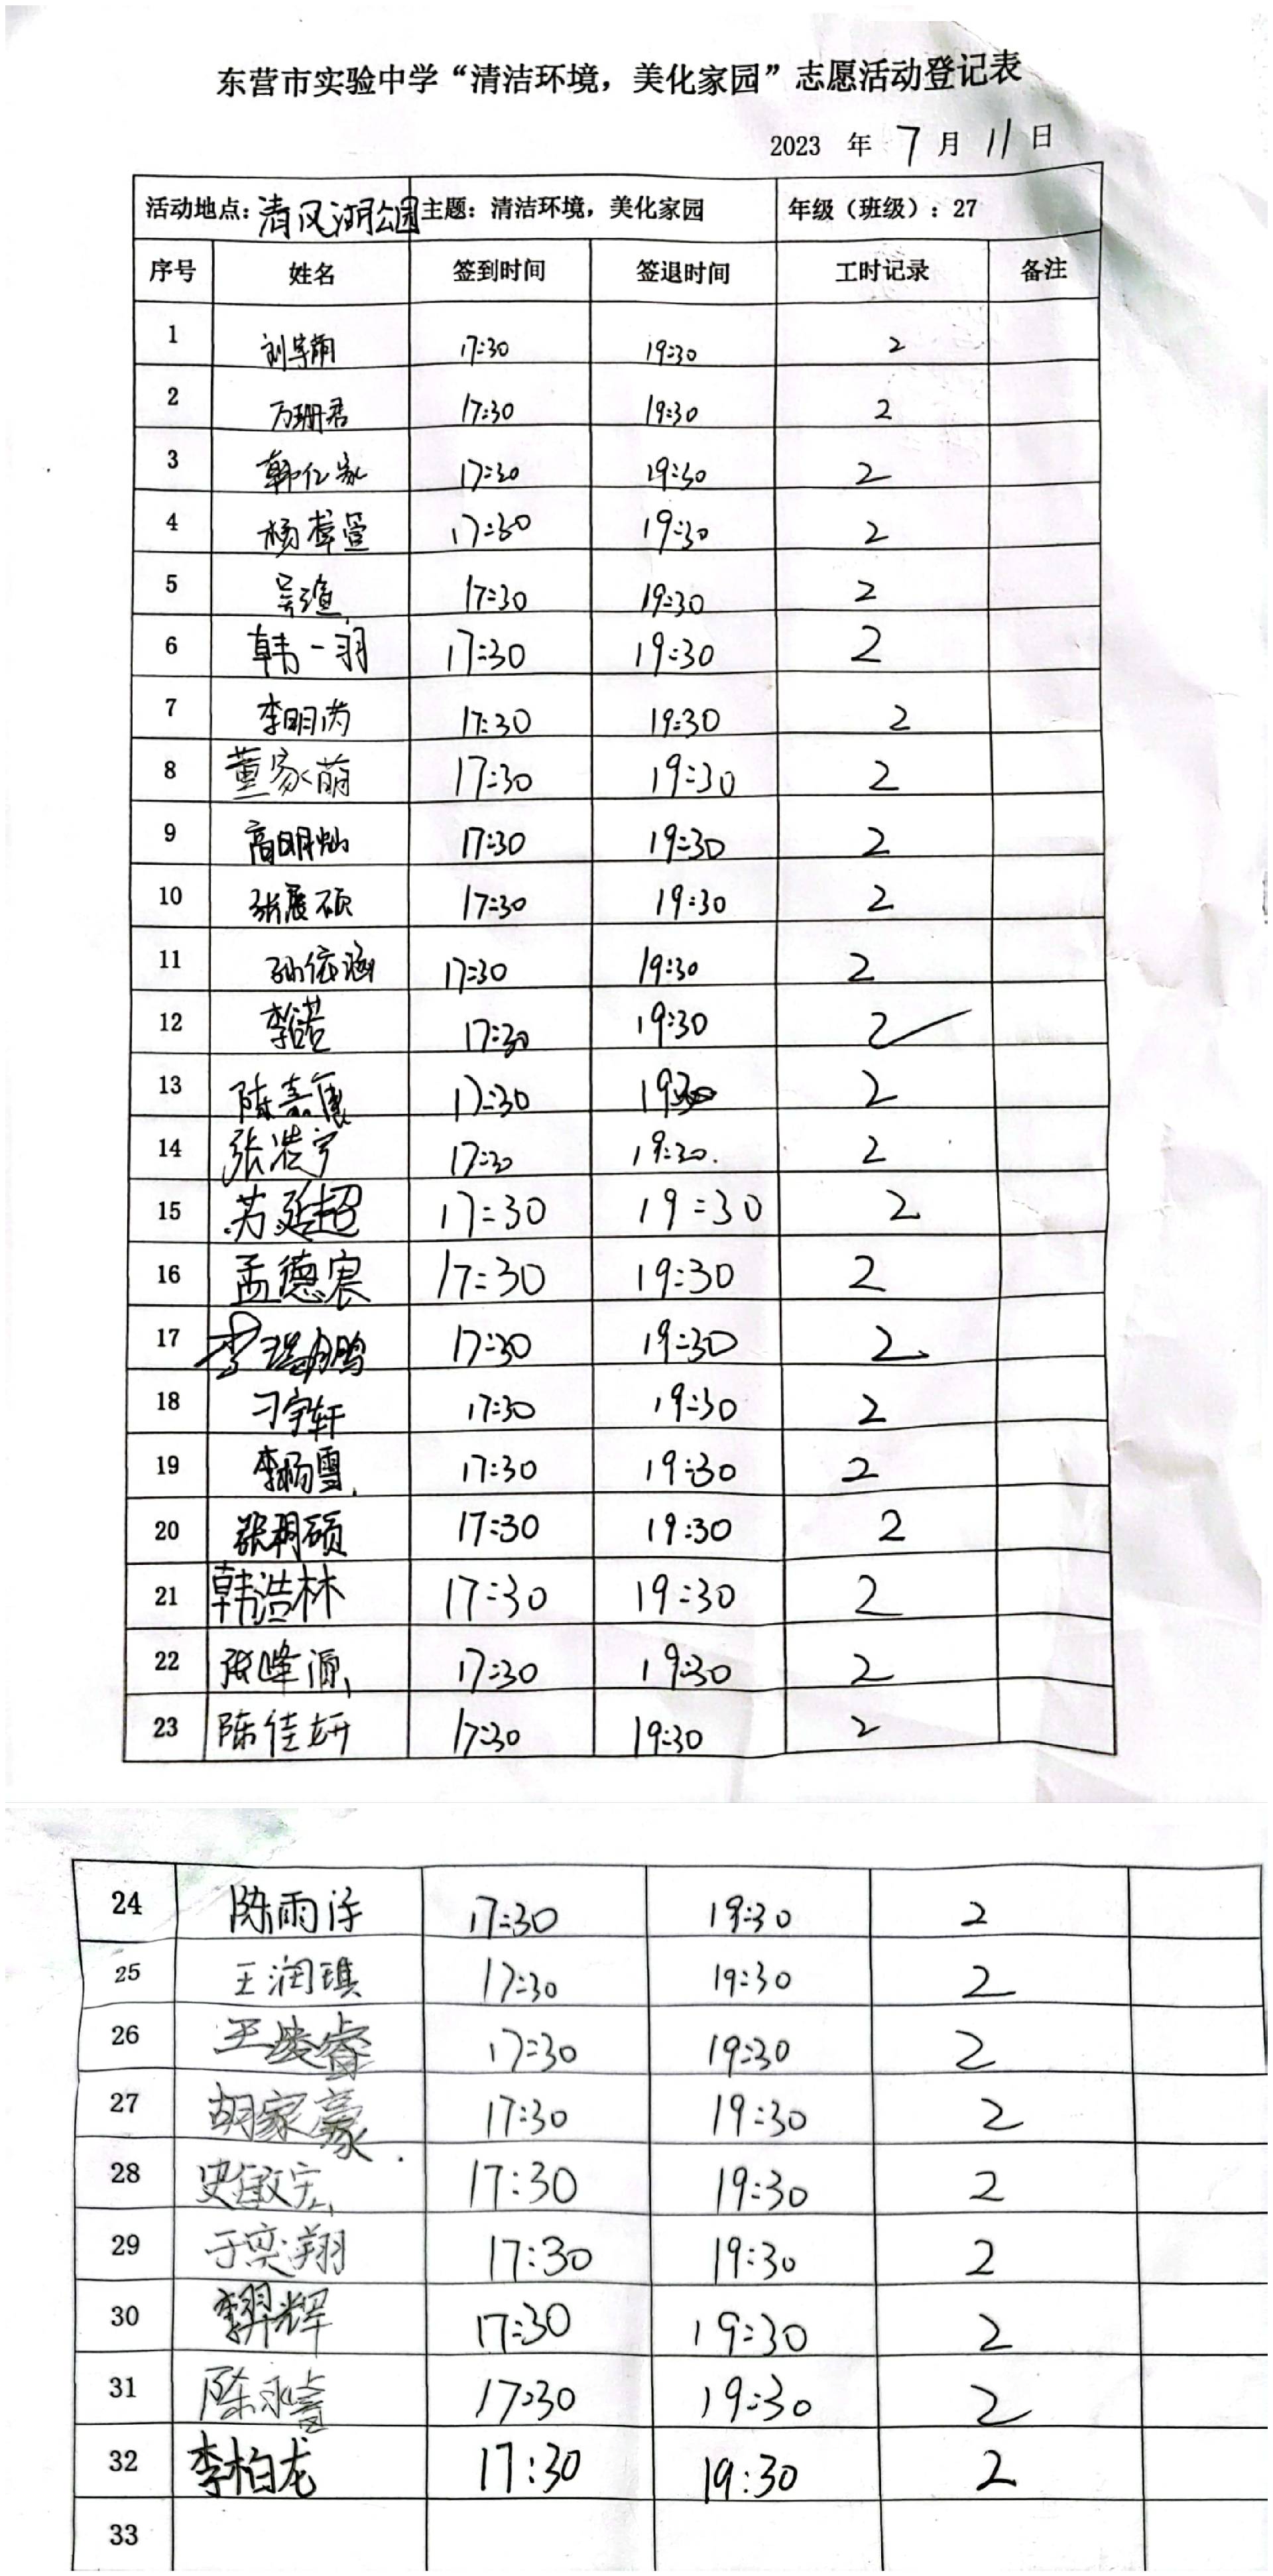 东营市实验中学“清洁环境，美化家园”志愿活动登记表
2023 年 7 月 11 日
活动地点：清风湖公园 主题：清洁环境，美化家园 年级（班级）：27
序号 姓名 签到时间 签退时间 工时记录 备注
1 刘宇萌 17:30 19:30 2
2 万珊君 17:30 19:30 2
3 韩仁家 17:30 19:30 2
4 杨 17:30 19:30 2
5 吴 17:30 19:30 2
6 韩一羽 17:30 19:30 2
7 李明芮 17:30 19:30 2
8 董家萌 17:30 19:30 2
9 高明灿 17:30 19:30 2
10 张展硕 17:30 19:30 2
11 孙依涵 17:30 19:30 2
12 李 17:30 19:30 2
13 陈嘉 17:30 19:30 2
14 张浩宇 17:30 19:30 2
15 苏延超 17:30 19:30 2
16 孟德宸 17:30 19:30 2
17 李瑞鹏 17:30 19:30 2
18 刁宇轩 17:30 19:30 2
19 李杨雪 17:30 19:30 2
20 张翔硕 17:30 19:30 2
21 韩浩林 17:30 19:30 2
22 张峰源 17:30 19:30 2
23 陈佳妍 17:30 19:30 2
24 陈雨泽 17:30 19:30 2
25 王润琪 17:30 19:30 2
26 王凌睿 17:30 19:30 2
27 胡家豪 17:30 19:30 2
28 史敏宏 17:30 19:30 2
29 于奕翔 17:30 19:30 2
30 李羿辉 17:30 19:30 2
31 陈永 17:30 19:30 2
32 李柏龙 17:30 19:30 2
33